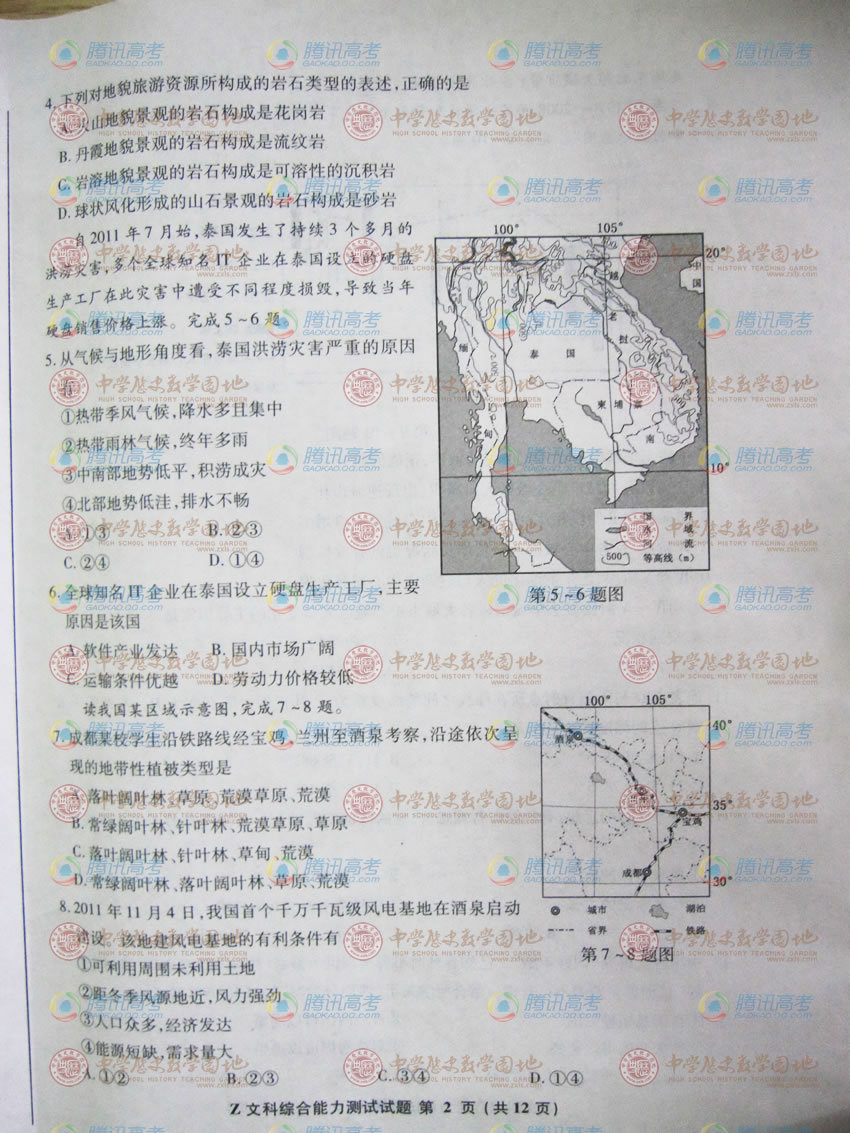 4.下列对地貌旅游资源所构成的岩石类型的表述,正确的是
A.火山地貌景观的岩石构成是花岗岩
B.丹霞地貌景观的岩石构成是流纹岩
C.岩溶地貌景观的岩石构成是可溶性的沉积岩
D.球状风化形成的山石景观的岩石构成是砂岩
自2011年7月始,泰国发生了持续3个多月的
洪涝灾害,多个全球知名IT企业在泰国设立的硬盘
生产工厂在此灾害中遭受不同程度损毁,导致当年
硬盘销售价格上涨。完成5~6题。
5.从气候与地形角度看,泰国洪涝灾害严重的原因
有
①热带季风气候,降水多且集中
②热带雨林气候,终年多雨
③中南部地势低平,积涝成灾
④北部地势低洼,排水不畅
A.①③ B.②③
C.②④ D.①④
6.全球知名IT企业在泰国设立硬盘生产工厂,主要
原因是该国
A.软件产业发达 B.国内市场广阔
C.运输条件优越 D.劳动力价格较低
100° 105°
20°
中
国
越
老
挝
缅
泰 国
柬 埔 寨
甸
南
10°
国 界
水 域
河 流
500 等高线(m)
第5~6题图
读我国某区域示意图,完成7~8题。
7.成都某校学生沿铁路线经宝鸡、兰州至酒泉考察,沿途依次呈
现的地带性植被类型是
A.落叶阔叶林、草原、荒漠草原、荒漠
B.常绿阔叶林、针叶林、荒漠草原、草原
C.落叶阔叶林、针叶林、草甸、荒漠
D.常绿阔叶林、落叶阔叶林、草原、荒漠
8.2011年11月4日,我国首个千万千瓦级风电基地在酒泉启动
建设。该地建风电基地的有利条件有
①可利用周围未利用土地
②距冬季风源地近,风力强劲
③人口众多,经济发达
④能源短缺,需求量大
A.①② B.②③ C.③④ D.①④
100° 105°
40°
酒泉
兰州
35°
宝鸡
成都
30°
城市 湖泊
省界 铁路
第7~8题图
Z文科综合能力测试试题 第2页(共12页)
腾讯高考
GAOKAO.QQ.COM
中学历史教学园地
HIGH SCHOOL HISTORY TEACHING GARDEN
www.zxls.com